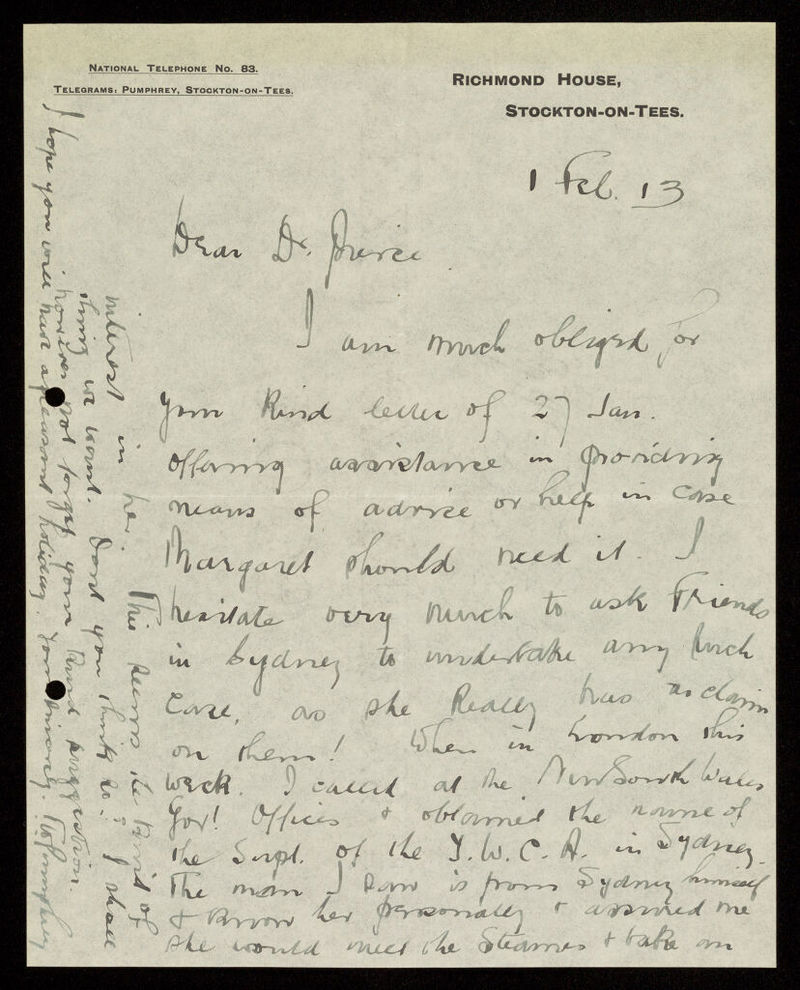 NATIONAL TELEPHONE NO. 83.
TELEGRAMS: PUMPHREY, STOCKTON-ON-TEES.
RICHMOND HOUSE,
STOCKTON-ON-TEES.
1 Feb. 13
Dear Dr.
I am much obliged for
your kind letter of 27 Jan.
offering assistance in providing
means of advice or help in case
Margaret should need it. I
hesitate very much to ask Friends
in Sydney to undertake any such
case, as she really has no claim
on them! When in London this
week. I called at the New South Wales
Gov! Offices & obtained the name of
the Supt. of the Y.W.C.A. in Sydney.
The man I saw is from Sydney himself
& know her personally & assured me
she would meet the Steamer & take an
interest in her. This seems the kind of
thing we want. Dont you think so? I shall
however not forget your kind suggestion.
I hope you will have a pleasant holiday. Yours sincerely. Pumphrey